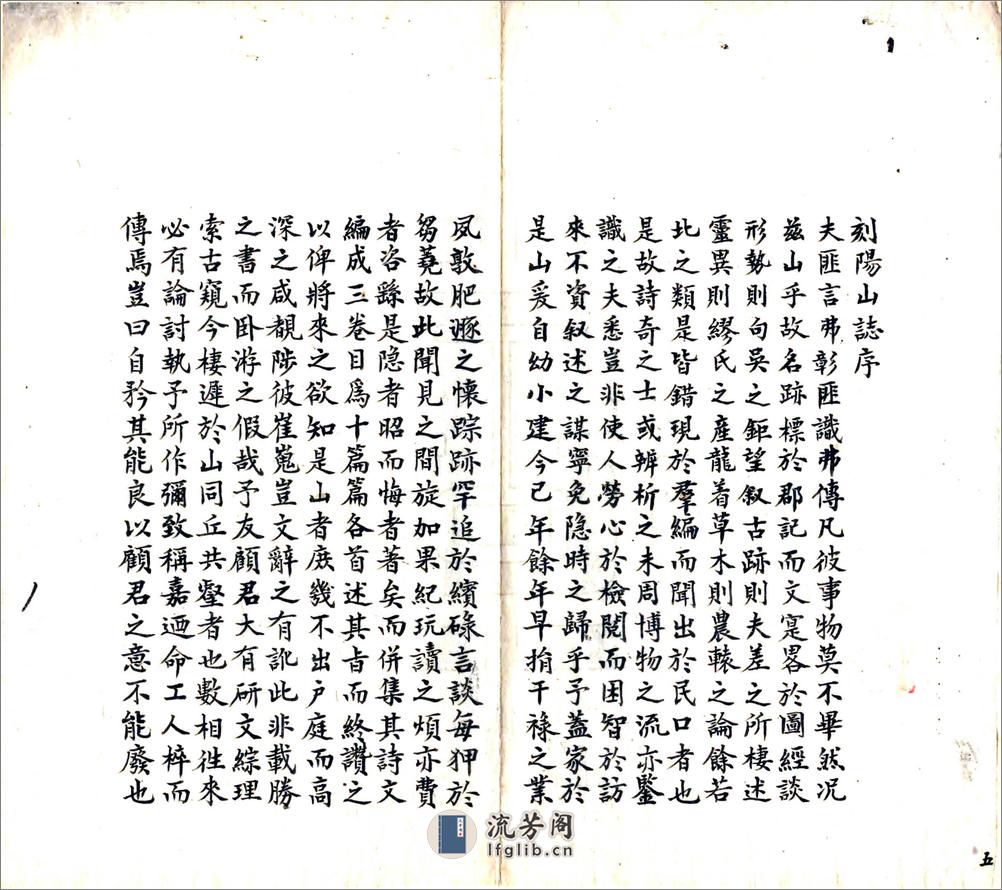 刻陽山誌序
夫匪言弗彰匪識弗傳凡彼事物莫不畢然况
茲山乎故名跡標於郡記而文寔畧於圖經談
形勢則句吳之鉅望叙古跡則夫差之所棲述
靈異則繆氏之產龍着草木則農轅之論餘若
此之類是皆錯現於羣編而聞出於民口者也
是故詩奇之士或辨析之未周博物之流亦鑒
識之夫悉豈非使人勞心於檢閱而困智於訪
來不資叙述之謀寧免隐時之歸乎予蓋家於
是山爰自幼小建今已年餘年早捐干祿之業
夙敦肥遯之懷踪跡罕追於繽碌言談每狎於
芻蕘故此聞見之間旋加果紀玩讀之煩亦費
者咨繇是隐者昭而悔者著矣而併集其詩文
編成三卷目爲十篇篇各首述其旨而終讚之
以俾將來之欲知是山者庶幾不出户庭而高
深之咸覩陟彼崔嵬豈文辭之有訛此非載勝
之書而卧游之假哉予友顧君大有研文綜理
索古窺今棲遲於山同丘共壑者也數相徃來
必有論討執予所作彌致稱嘉迺命工人梓而
傳焉豈曰自矜其能良以顧君之意不能廢也
五
流芳阁
lfglib.cn